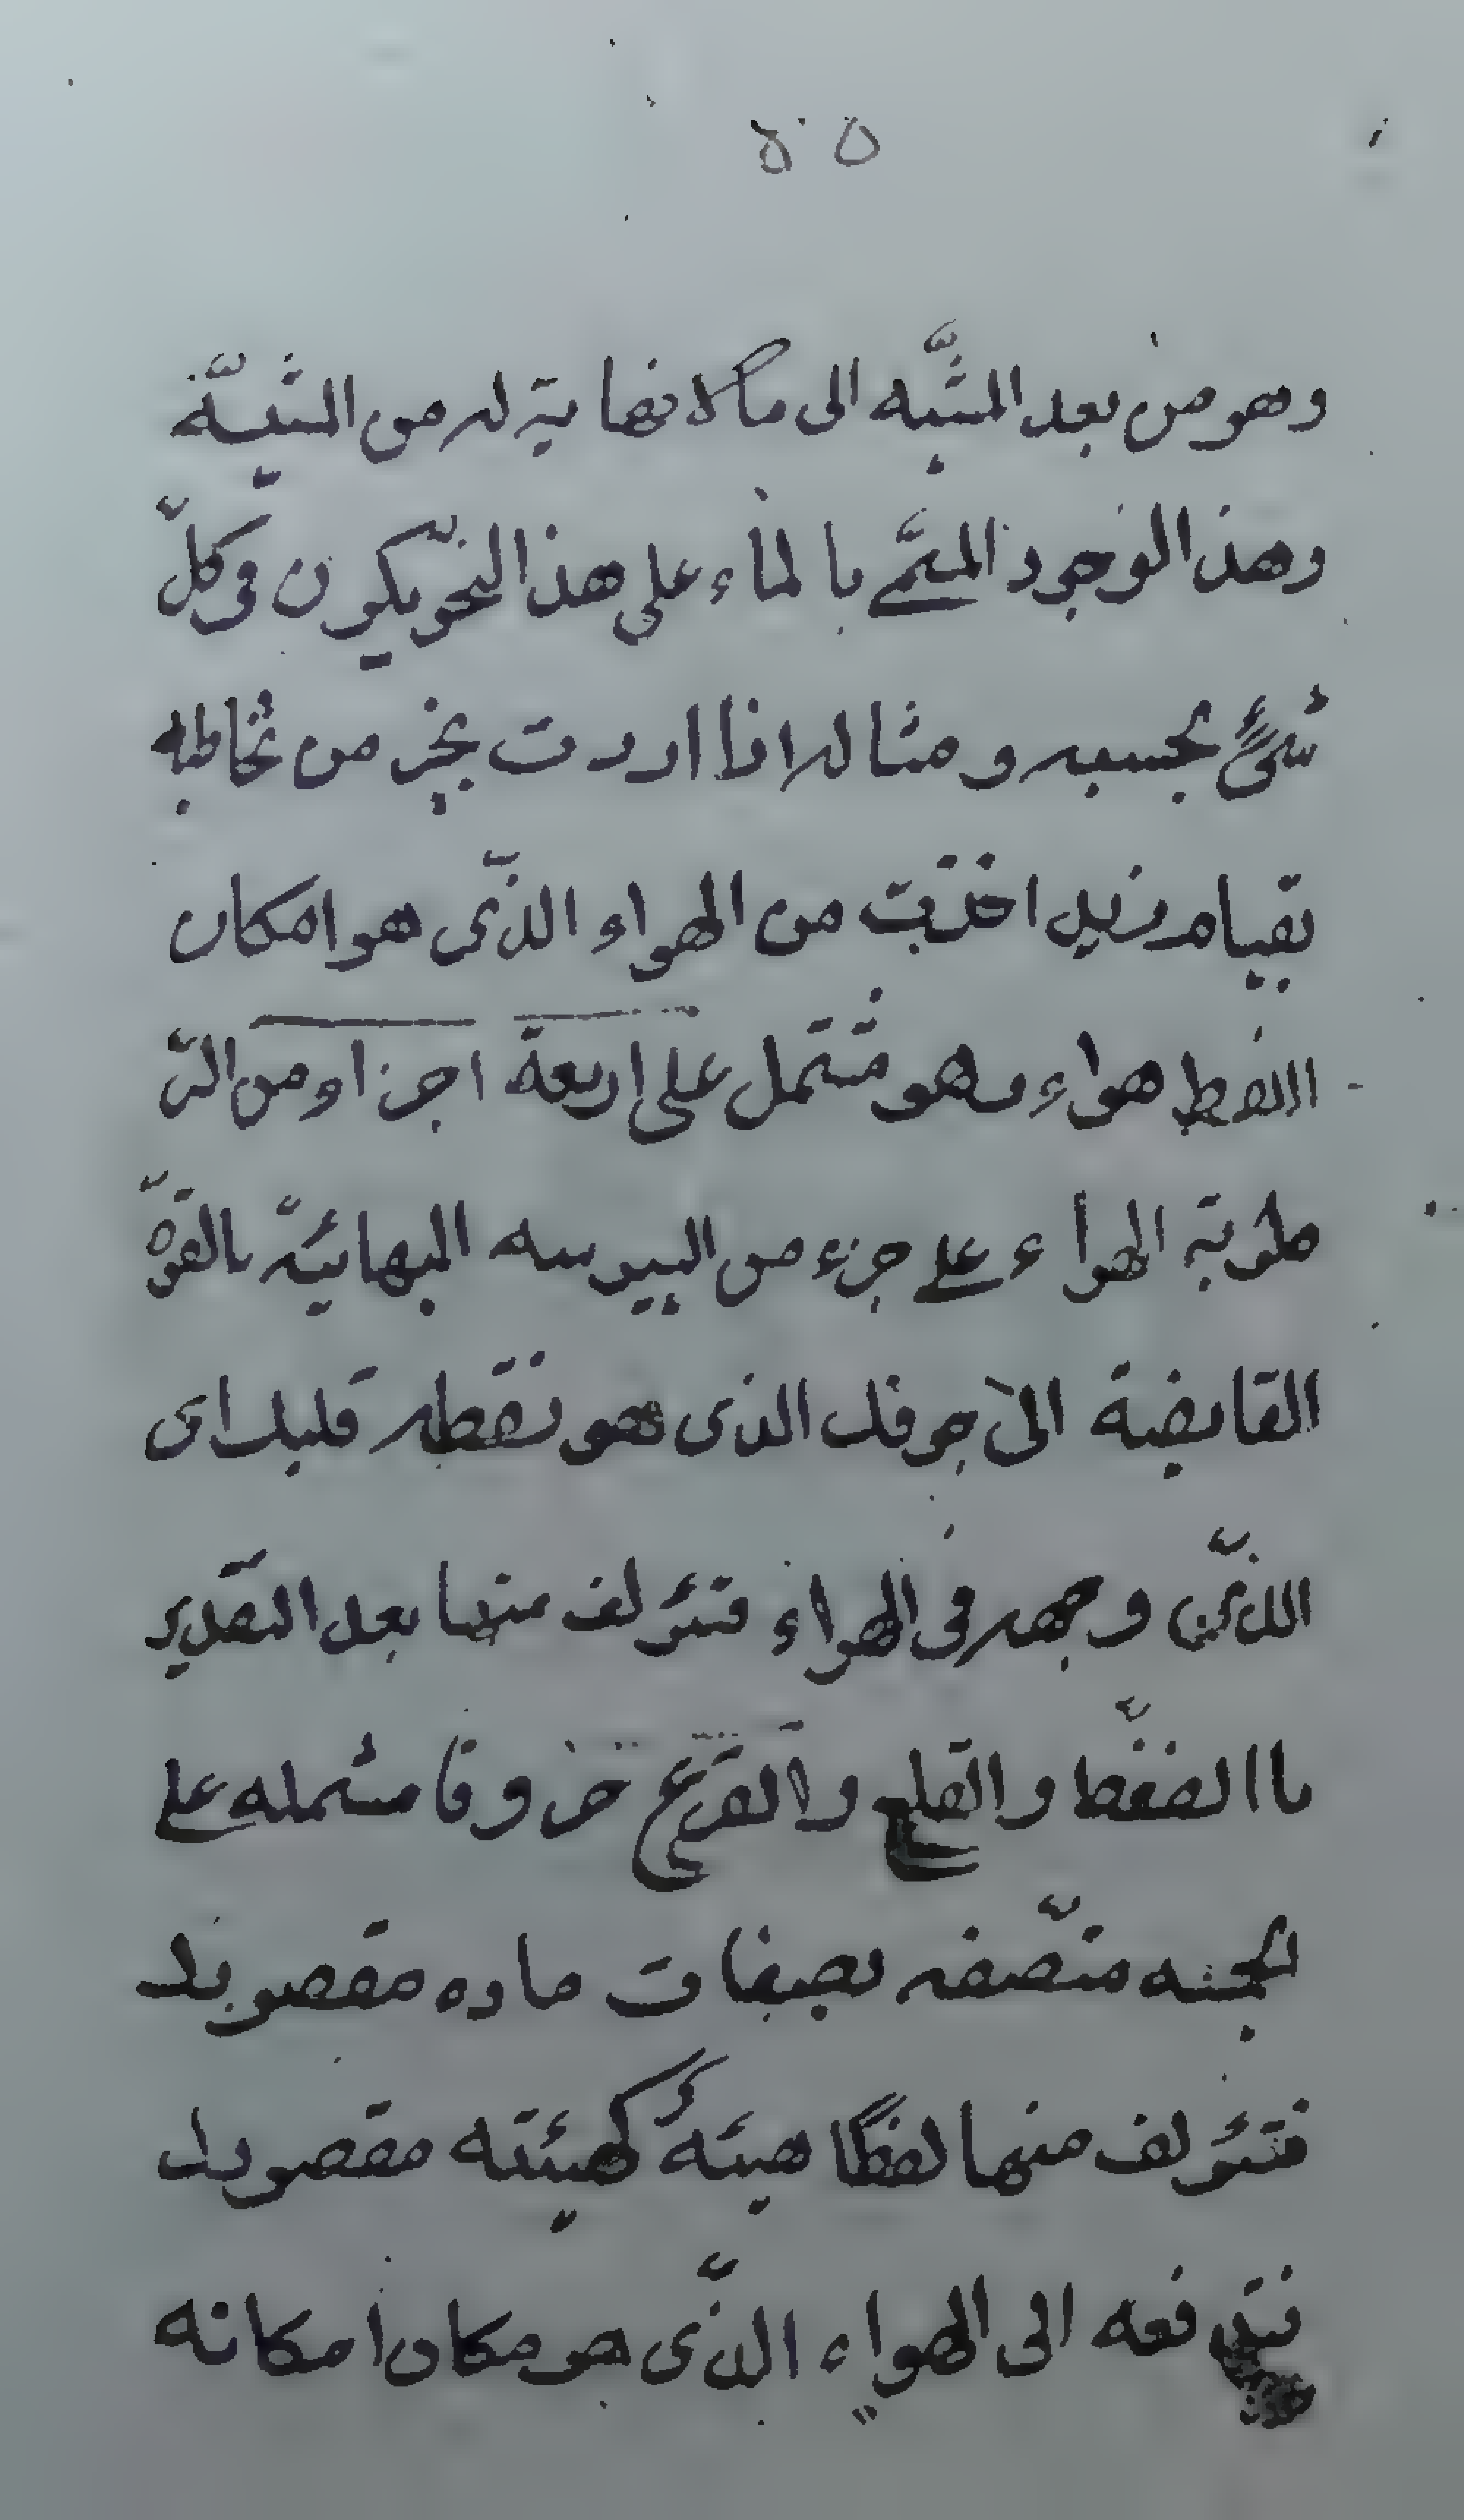 ٥٥
وهو من بعد المشبّه الى ما لا نهاية له من الشيئيّة
وهذا الوجود المسمّى بالماء على هذا النحو يكون في كلّ
شيءٍ بحسبه ومثاله اذا اردت بخبر من تخاطبه
بقيام زيد اخذت من الهواء الذّى هو امكان
اللافظ هواء وهو مشتمل على اربعة اجزاء من الر
طوبة الهواء على جزء من اليبوسه البهائيّة بالقوّة
القابضة الى جوفك الذى هو نقطه قلبك اى
الذّى وجهه فى الهواء فتؤلف منها بعد التقدير
باالضّغط والقلع والقرع حروفا مشتمله على
لجنه متّصفه بصفات ماده مقصودك
فتؤلف منها لفظا هيئة كهيئته مقصودك
فتدفعه الى الهواء الذّى هو مكان امكانه